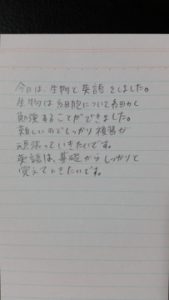 今日は、生物と英語をしました。
生物は細胞についてお話し
勉強することができました。
難しいのでしっかり復習が
頑張っていきたいです。
英語は、基礎からしっかりと
覚えていきたいです。